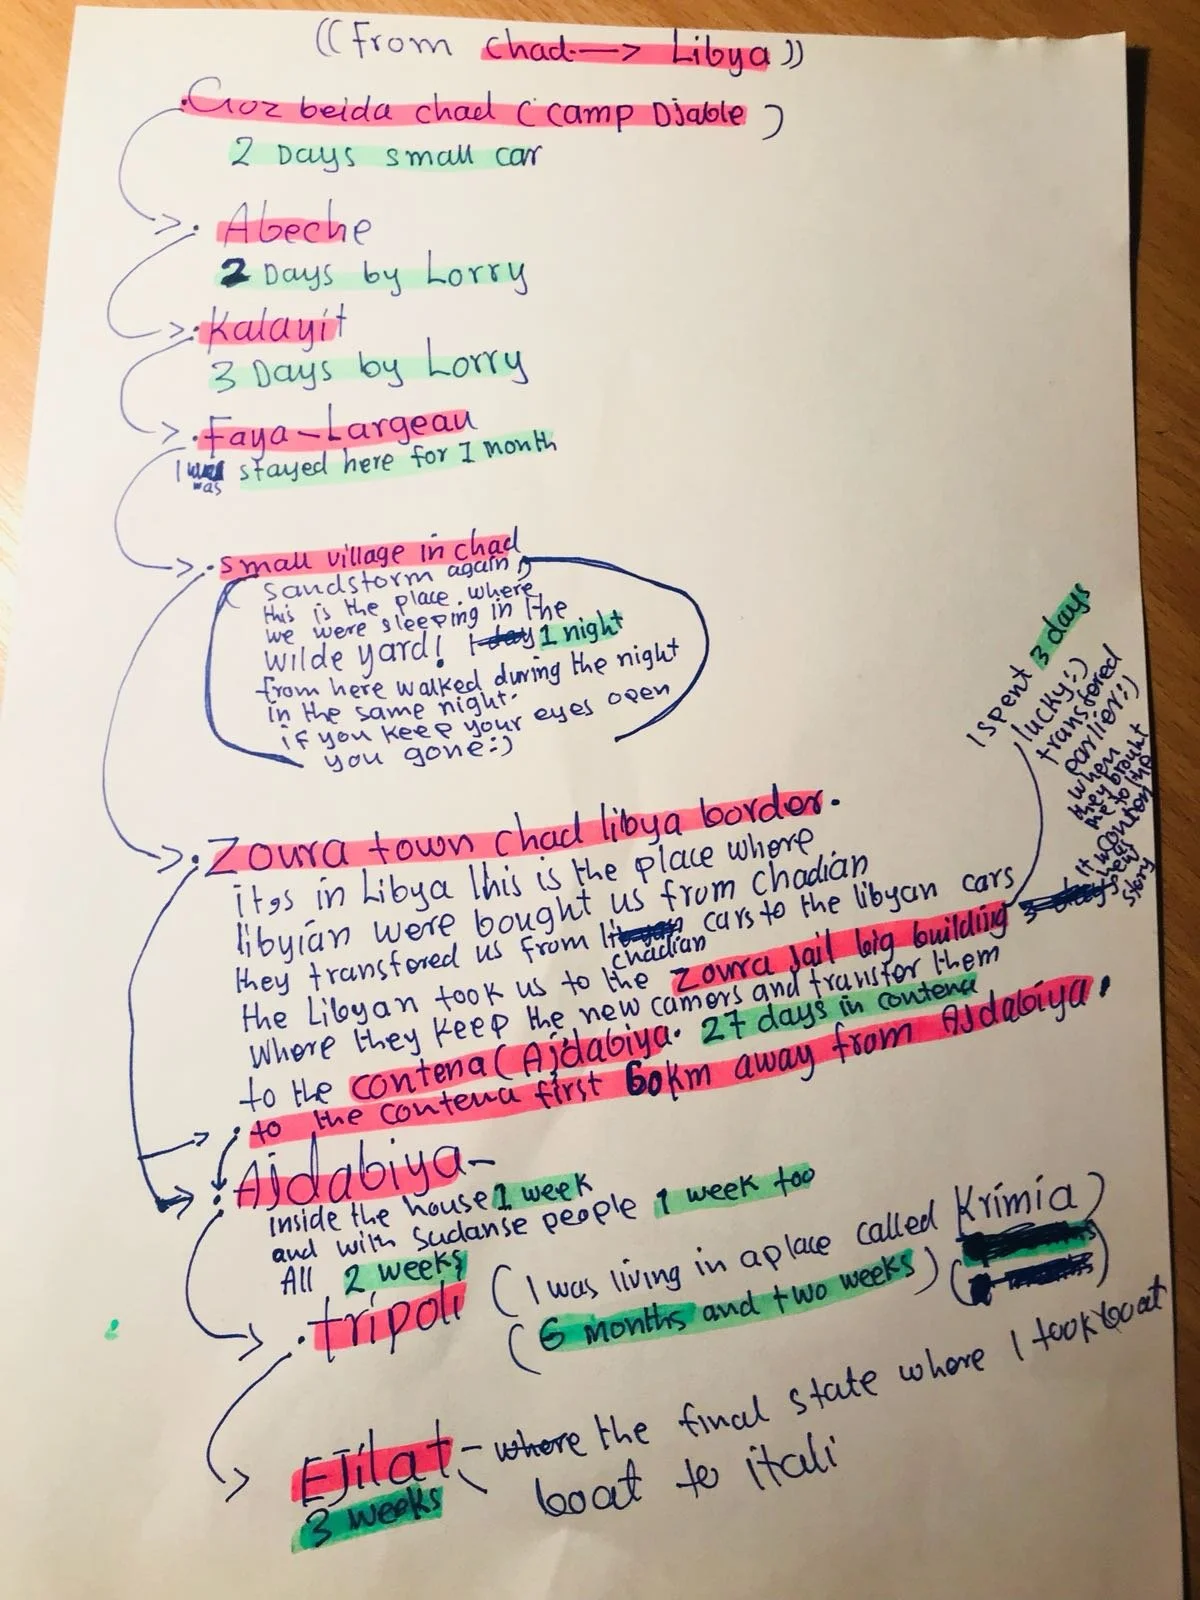 ((From chad —> Libya))
Goz beida chad (camp Djable)
2 Days small car
Abeche
2 Days by Lorry
Kalayit
3 Days by Lorry
Faya-Largeau
I was stayed here for 1 month
small village in chad
sandstorm again
this is the place where
we were sleeping in the
wilde yard! 1 day 1 night
from here walked during the night
in the same night.
if you keep your eyes open
you gone:)
Zoura town chad libya border.
it,s in Libya this is the place where
libyian were bought us from chadian
they transfered us from chadian cars to the libyan cars
the Libyan took us to the Zoura Jail big building
I spent 3 days
lucky:)
transfered
earlier:)
when
they brought
me to the
contena
It was
new
story
where they keep the new camers and transfer them
to the contena (Ajdabiya. 27 days in contena
to the contena first 60km away from AJdabiya.
AJdabiya-
inside the house 1 week
and with Sudanse people 1 week too
All 2 weeks
tripoli (I was living in a place called Krimia)
(6 months and two weeks)
EJilat - where the final state where I took boat
3 weeks
boat to itali